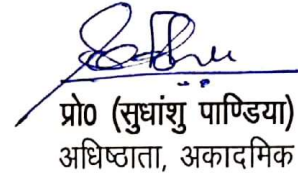 प्रो0 (सुधांशु पाण्डिया)
अधिष्ठाता, अकादमिक